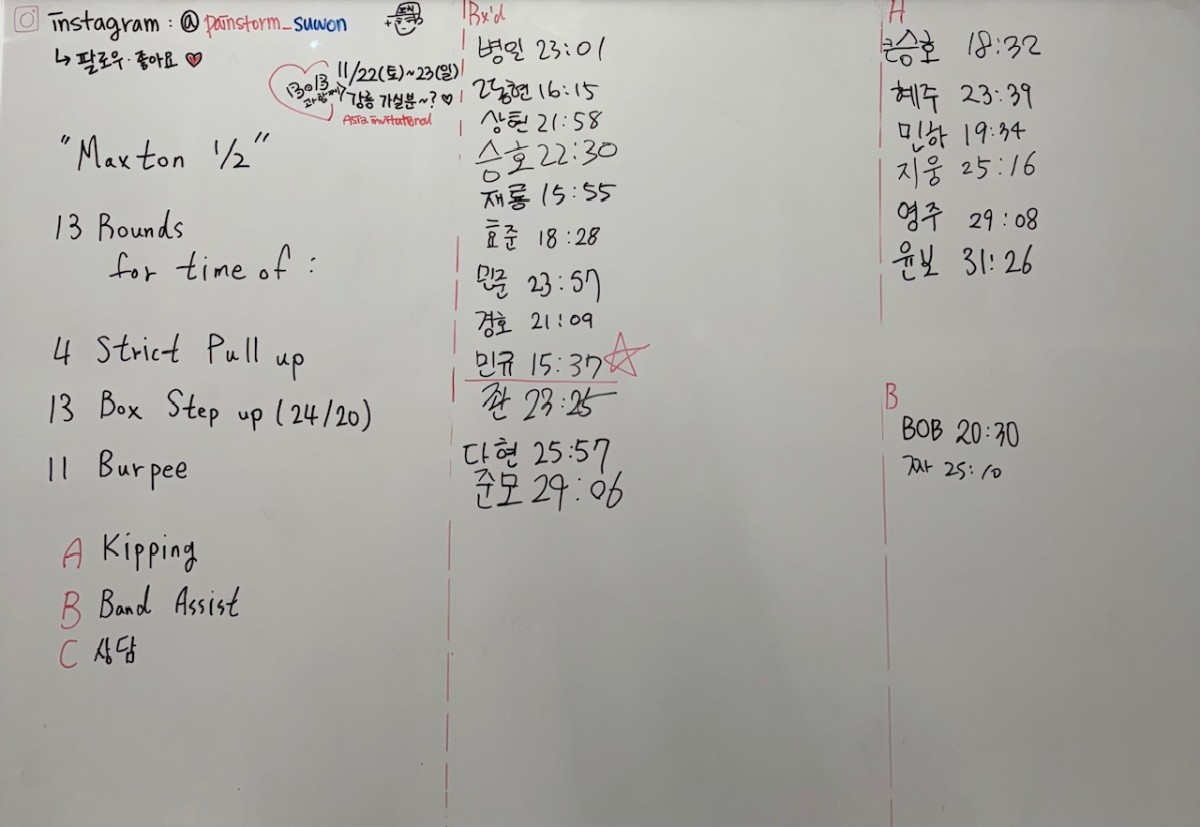 instagram : @ painstorm_suwon
↳ 팔로우·좋아요 ♥
11/22(토)~23(일)
강릉 가실분~? ♡
Asia invitational
"Maxton 1/2"
13 Rounds
for time of :
4 Strict Pull up
13 Box Step up (24/20)
11 Burpee
A Kipping
B Band Assist
C 상담
Rx'd
병일 23:01
고동현 16:15
상현 21:58
승호 22:30
재룡 15:55
효준 18:28
민준 23:57
경호 21:09
민규 15:37
좐 23:25
다현 25:57
준모 29:06
A
큰승호 18:32
혜주 23:39
민하 19:34
지웅 25:16
영주 29:08
윤보 31:26
B
BOB 20:30
짜 25:10